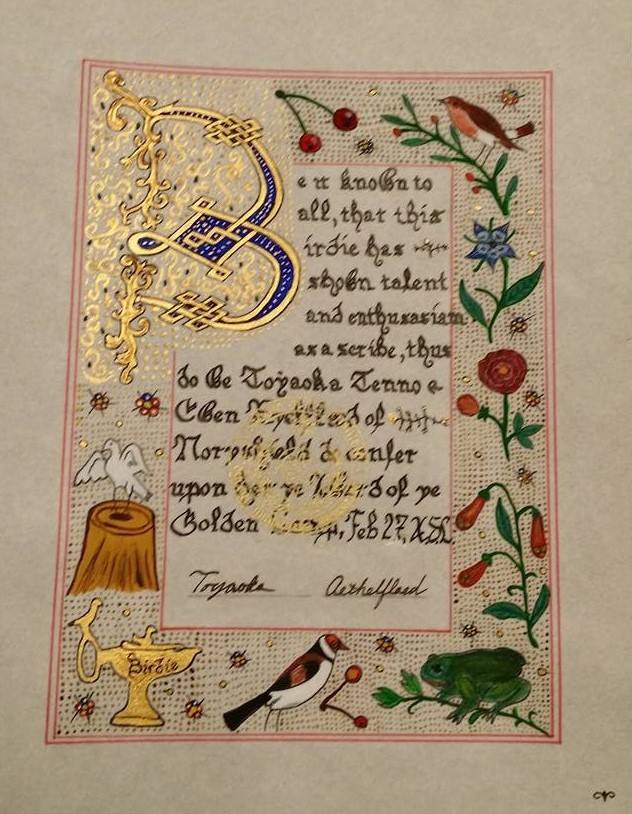 Be it known to
all, that this
irdie has
shown talent
and enthusasiam
as a scribe, thus
do We Toyaoka Tenno &
Cwen of
do confer
upon her ye of ye
Golden Lamp, Feb 27,
Toyaoka Aethelflaed
Birdie